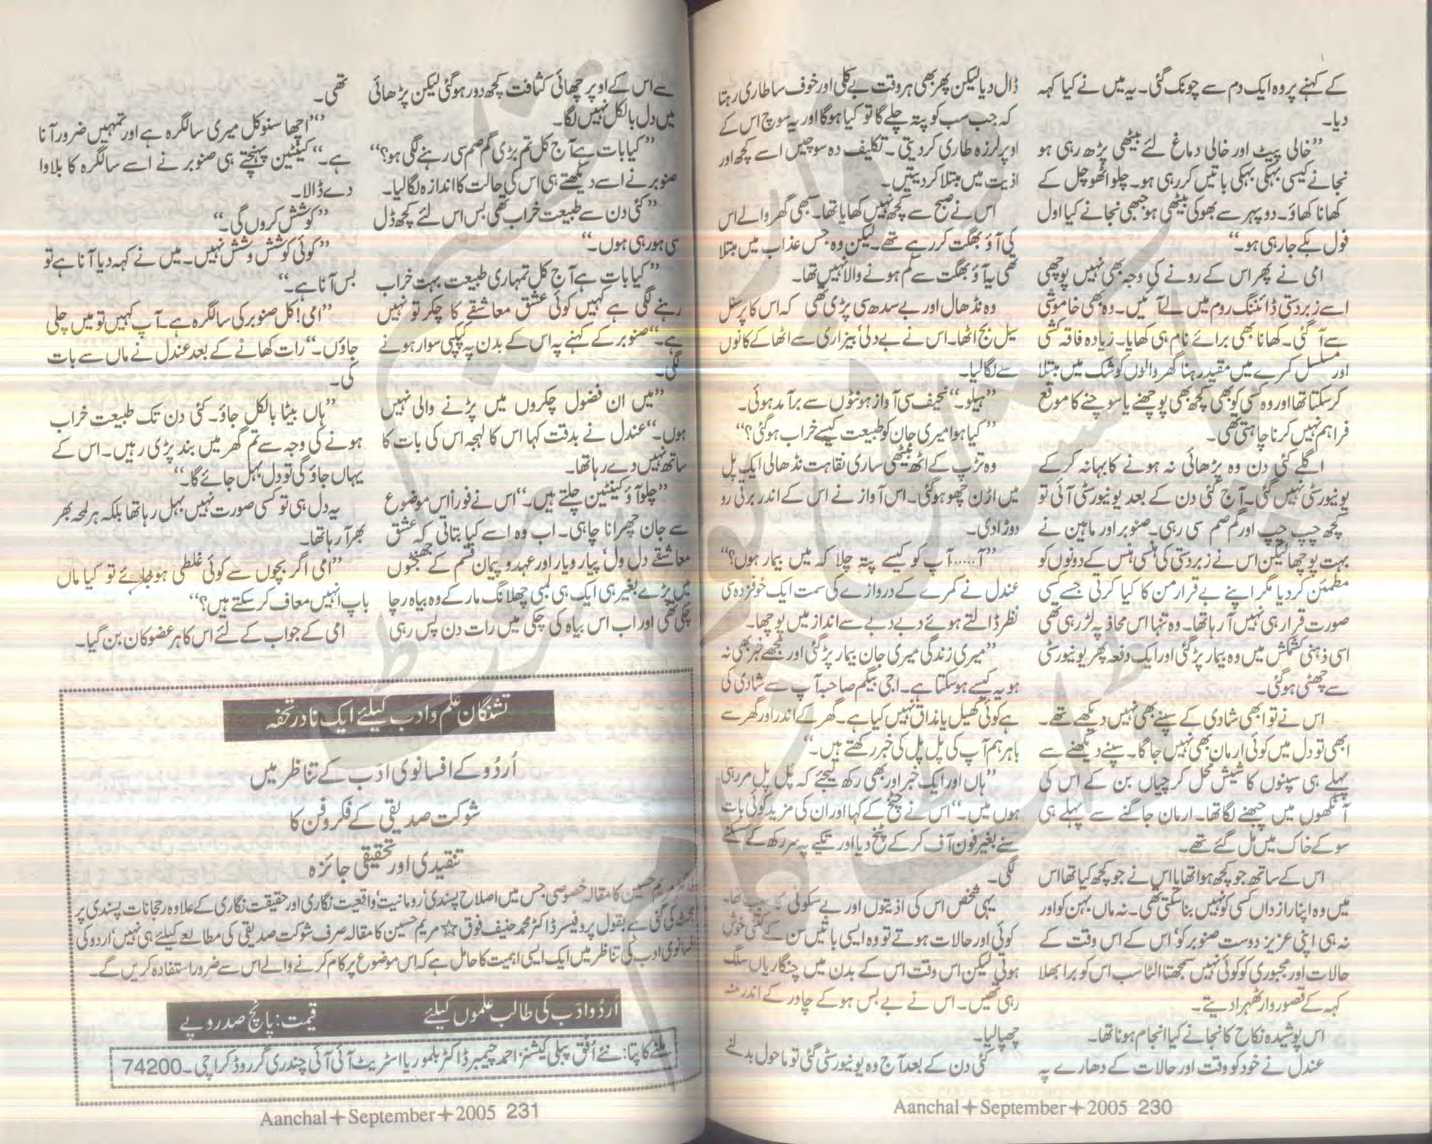 کے کہنے پر وہ ایک دم سے چونک گئی۔ یہ میں نے کیا کہہ
دیا۔
”خالی پیٹ اور خالی دماغ لئے بیٹھی پڑھ رہی ہو
نجانے کیسی بہکی بہکی باتیں کر رہی ہو۔ چلو اٹھو چل کے
کھانا کھاؤ۔ دوپہر سے بھوکی بیٹھی ہو جبھی نجانے کیا اول
فول بکے جا رہی ہو۔“
امی نے پھر اس کے رونے کی وجہ بھی نہیں پوچھی
اسے زبردستی ڈائننگ روم میں لے آئیں۔ وہ بھی خاموشی
سے آ گئی۔ کھانا بھی برائے نام ہی کھایا۔ زیادہ فاقہ کشی
اور مسلسل کمرے میں مقید رہنا گھر والوں کو شک میں مبتلا
کر سکتا تھا اور وہ کسی کو بھی کچھ بھی پوچھنے یا سوچنے کا موقع
فراہم نہیں کرنا چاہتی تھی۔
اگلے کئی دن وہ پڑھائی نہ ہونے کا بہانہ کر کے
یونیورسٹی نہیں گئی۔ آج کئی دن کے بعد یونیورسٹی آئی تو
کچھ چپ چپ اور گم صم سی رہی۔ صنوبر اور ماہین نے
بہت پوچھا لیکن اس نے زبردستی کی ہنسی ہنس کے دونوں کو
مطمئن کر دیا مگر اپنے بے قرار من کا کیا کرتی جسے کسی
صورت قرار ہی نہیں آ رہا تھا۔ وہ تنہا اس محاذ پہ لڑ رہی تھی
اسی ذہنی کشمکش میں وہ بیمار پڑ گئی اور ایک دفعہ پھر یونیورسٹی
سے چھٹی ہو گئی۔
اس نے تو ابھی شادی کے سپنے بھی نہیں دیکھے تھے۔
ابھی تو دل میں کوئی ارمان بھی نہیں جاگا۔ سپنے دیکھنے سے
پہلے ہی سپنوں کا شیش محل کرچیاں بن کے اس کی
آنکھوں میں چبھنے لگا تھا۔ ارمان جاگنے سے پہلے ہی
سو کے خاک میں مل گئے تھے۔
اس کے ساتھ جو کچھ ہوا تھا یا اس نے جو کچھ کیا تھا اس
میں وہ اپنا رازداں کسی کو نہیں بنا سکتی تھی۔ نہ ماں بہن کو اور
نہ ہی اپنی عزیز دوست صنوبر کو‘ اس کے اس وقت کے
حالات اور مجبوری کو کوئی نہیں سمجھتا الٹا سب اس کو برا بھلا
کہہ کے قصوروار ٹھہرا دیتے۔
اس پوشیدہ نکاح کا نجانے کیا انجام ہونا تھا۔
عندل نے خود کو وقت اور حالات کے دھارے پہ
ڈال دیا لیکن پھر بھی ہر وقت بے کلی اور خوف سا طاری رہتا
کہ جب سب کو پتہ چلے گا تو کیا ہو گا اور یہ سوچ اس کے
اوپر لرزہ طاری کر دیتی۔ تکلیف دہ سوچیں اسے کچھ اور
اذیت میں مبتلا کر دیتیں۔
اس نے صبح سے کچھ نہیں کھایا تھا۔ سبھی گھر والے اس
کی آؤ بھگت کر رہے تھے۔ لیکن وہ جس عذاب میں مبتلا
تھی یہ آؤ بھگت سے کم ہونے والا نہیں تھا۔
وہ نڈھال اور بے سدھ سی پڑی تھی کہ اس کا پرسنل
سیل بج اٹھا۔ اس نے بے دلی‘ بیزاری سے اٹھا کے کانوں
سے لگا لیا۔
”ہیلو۔“ نحیف سی آواز ہونٹوں سے برآمد ہوئی۔
”کیا ہوا میری جان کو طبیعت کیسے خراب ہو گئی؟“
وہ تڑپ کے اٹھ بیٹھی ساری نقاہت نڈھالی ایک پل
میں اڑن چھو ہو گئی۔ اس آواز نے اس کے اندر برقی رو
دوڑا دی۔
”آ……آپ کو کیسے پتہ چلا کہ میں بیمار ہوں؟“
عندل نے کمرے کے دروازے کی سمت ایک خوفزدہ سی
نظر ڈالتے ہوئے دبے دبے سے انداز میں پوچھا۔
”میری زندگی میری جان بیمار پڑ گئی اور مجھے خبر بھی نہ
ہو یہ کیسے ہو سکتا ہے۔ اجی بیگم صاحبہ آپ سے شادی کی
ہے کوئی کھیل یا مذاق نہیں کیا ہے۔ گھر کے اندر اور گھر سے
باہر ہم آپ کی پل پل کی خبر رکھتے ہیں۔“
”ہاں اور ایک خبر اور بھی رکھ لیجئے کہ پل پل مر رہی
ہوں میں۔“ اس نے چیخ کے کہا اور ان کی مزید کوئی بات
سنے بغیر فون آف کر کے پٹخ دیا اور تکیے پہ سر رکھ کے سسکنے
لگی۔
یہی شخص اس کی اذیتوں اور بے سکونی کا سبب تھا۔
کوئی اور حالات ہوتے تو وہ ایسی باتیں سن کے کتنی خوش
ہوتی لیکن اس وقت اس کے بدن میں چنگاریاں سلگ
رہی تھیں۔ اس نے بے بس ہو کے چادر کے اندر منہ
چھپا لیا۔
کئی دن کے بعد آج وہ یونیورسٹی گئی تو ماحول بدلنے
Aanchal + September + 2005 230
سے اس کے اوپر چھائی کثافت کچھ دور ہو گئی لیکن پڑھائی
میں دل بالکل نہیں لگا۔
”کیا بات ہے آج کل تم بڑی گم صم سی رہنے لگی ہو؟“
صنوبر نے اسے دیکھتے ہی اس کی حالت کا اندازہ لگا لیا۔
”کئی دن سے طبیعت خراب تھی بس اس لئے کچھ ڈل
سی ہو رہی ہوں۔“
”کیا بات ہے آج کل تمہاری طبیعت بہت خراب
رہنے لگی ہے کہیں کوئی عشق معاشقے کا چکر تو نہیں
ہے۔“ صنوبر کے کہنے پہ اس کے بدن پہ کپکپی سوار ہونے
لگی۔
”میں ان فضول چکروں میں پڑنے والی نہیں
ہوں۔“ عندل نے بدقت کہا اس کا لہجہ اس کی بات کا
ساتھ نہیں دے رہا تھا۔
”چلو آؤ کینٹین چلتے ہیں۔“ اس نے فوراً اس موضوع
سے جان چھڑانا چاہی۔ اب وہ اسے کیا بتاتی کہ عشق
معاشقے دل ول‘ پیار ویار اور عہدو پیمان قسم کے جھنجٹوں
میں پڑے بغیر ہی ایک ہی لمبی چھلانگ مار کے وہ بیاہ رچا
چکی تھی اور اب اس بیاہ کی چکی میں رات دن پس رہی
تھی۔
”اچھا سنو کل میری سالگرہ ہے اور تمہیں ضرور آنا
ہے۔“ کینٹین پہنچتے ہی صنوبر نے اسے سالگرہ کا بلاوا
دے ڈالا۔
”کوشش کروں گی۔“
”کوئی کوشش وشش نہیں۔ میں نے کہہ دیا آنا ہے تو
بس آنا ہے۔“
”امی! کل صنوبر کی سالگرہ ہے۔ آپ کہیں تو میں چلی
جاؤں۔“ رات کھانے کے بعد عندل نے ماں سے بات
کی۔
”ہاں بیٹا بالکل جاؤ۔ کئی دن تک طبیعت خراب
ہونے کی وجہ سے تم گھر میں بند پڑی رہیں۔ اس کے
یہاں جاؤ گی تو دل بہل جائے گا۔“
یہ دل ہی تو کسی صورت نہیں بہل رہا تھا بلکہ ہر لمحہ بھر
بھر آ رہا تھا۔
”امی اگر بچوں سے کوئی غلطی ہو جائے تو کیا ماں
باپ انہیں معاف کر سکتے ہیں؟“
امی کے جواب کے لئے اس کا ہر عضو کان بن گیا۔
تشنگان علم و ادب کیلئے ایک نادر تحفہ
اُردو کے افسانوی ادب کے تناظر میں
شوکت صدیقی کے فکر و فن کا
تنقیدی اور تحقیقی جائزہ
مریم حسین کا مقالہ خصوصی جس میں اصلاح پسندی‘ رومانیت‘ واقعیت نگاری اور حقیقت نگاری کے علاوہ رجحانات پسندی پر
بحث کی گئی ہے بقول پروفیسر ڈاکٹر محمد حنیف فوق ☆ مریم حسین کا مقالہ صرف شوکت صدیقی کی مطالعے کیلئے ہی نہیں‘ اردو کی
افسانوی ادب کی تناظر میں ایک ایسی اہمیت کا حامل ہے کہ اس موضوع پر کام کرنے والے اس سے ضرور استفادہ کریں گے۔
اردو ادب کی طالب علموں کیلئے قیمت: پانچ صد روپے
ملنے کا پتا: نئے اُفق پبلی کیشنز احمد چیمبر ڈاکٹر بلموریا اسٹریٹ آئی آئی چندریگر روڈ کراچی۔74200
Aanchal + September + 2005 231